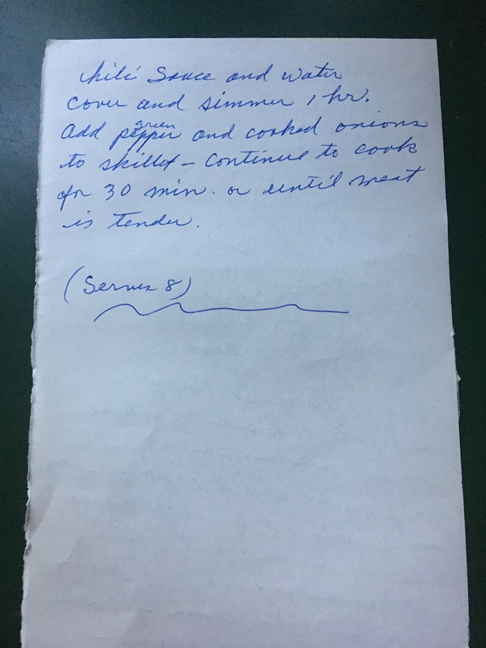 chili Sauce and water
cover and simmer 1 hr.
add green pepper and cooked onions
to skillet - continue to cook
for 30 min. or until meat
is tender.
(Serves 8)